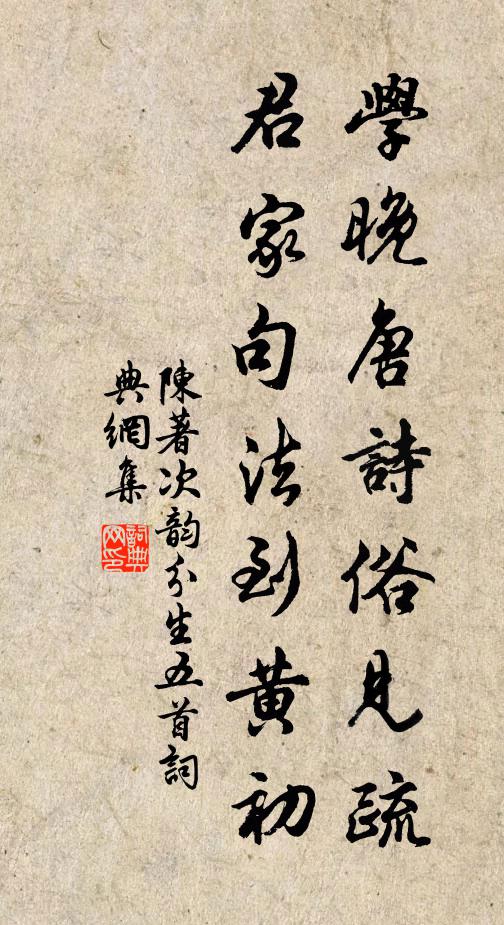 學晚唐詩俗見疏
君家句法到黃初
陳著次韵分生五首詞
典網集
詞典網印